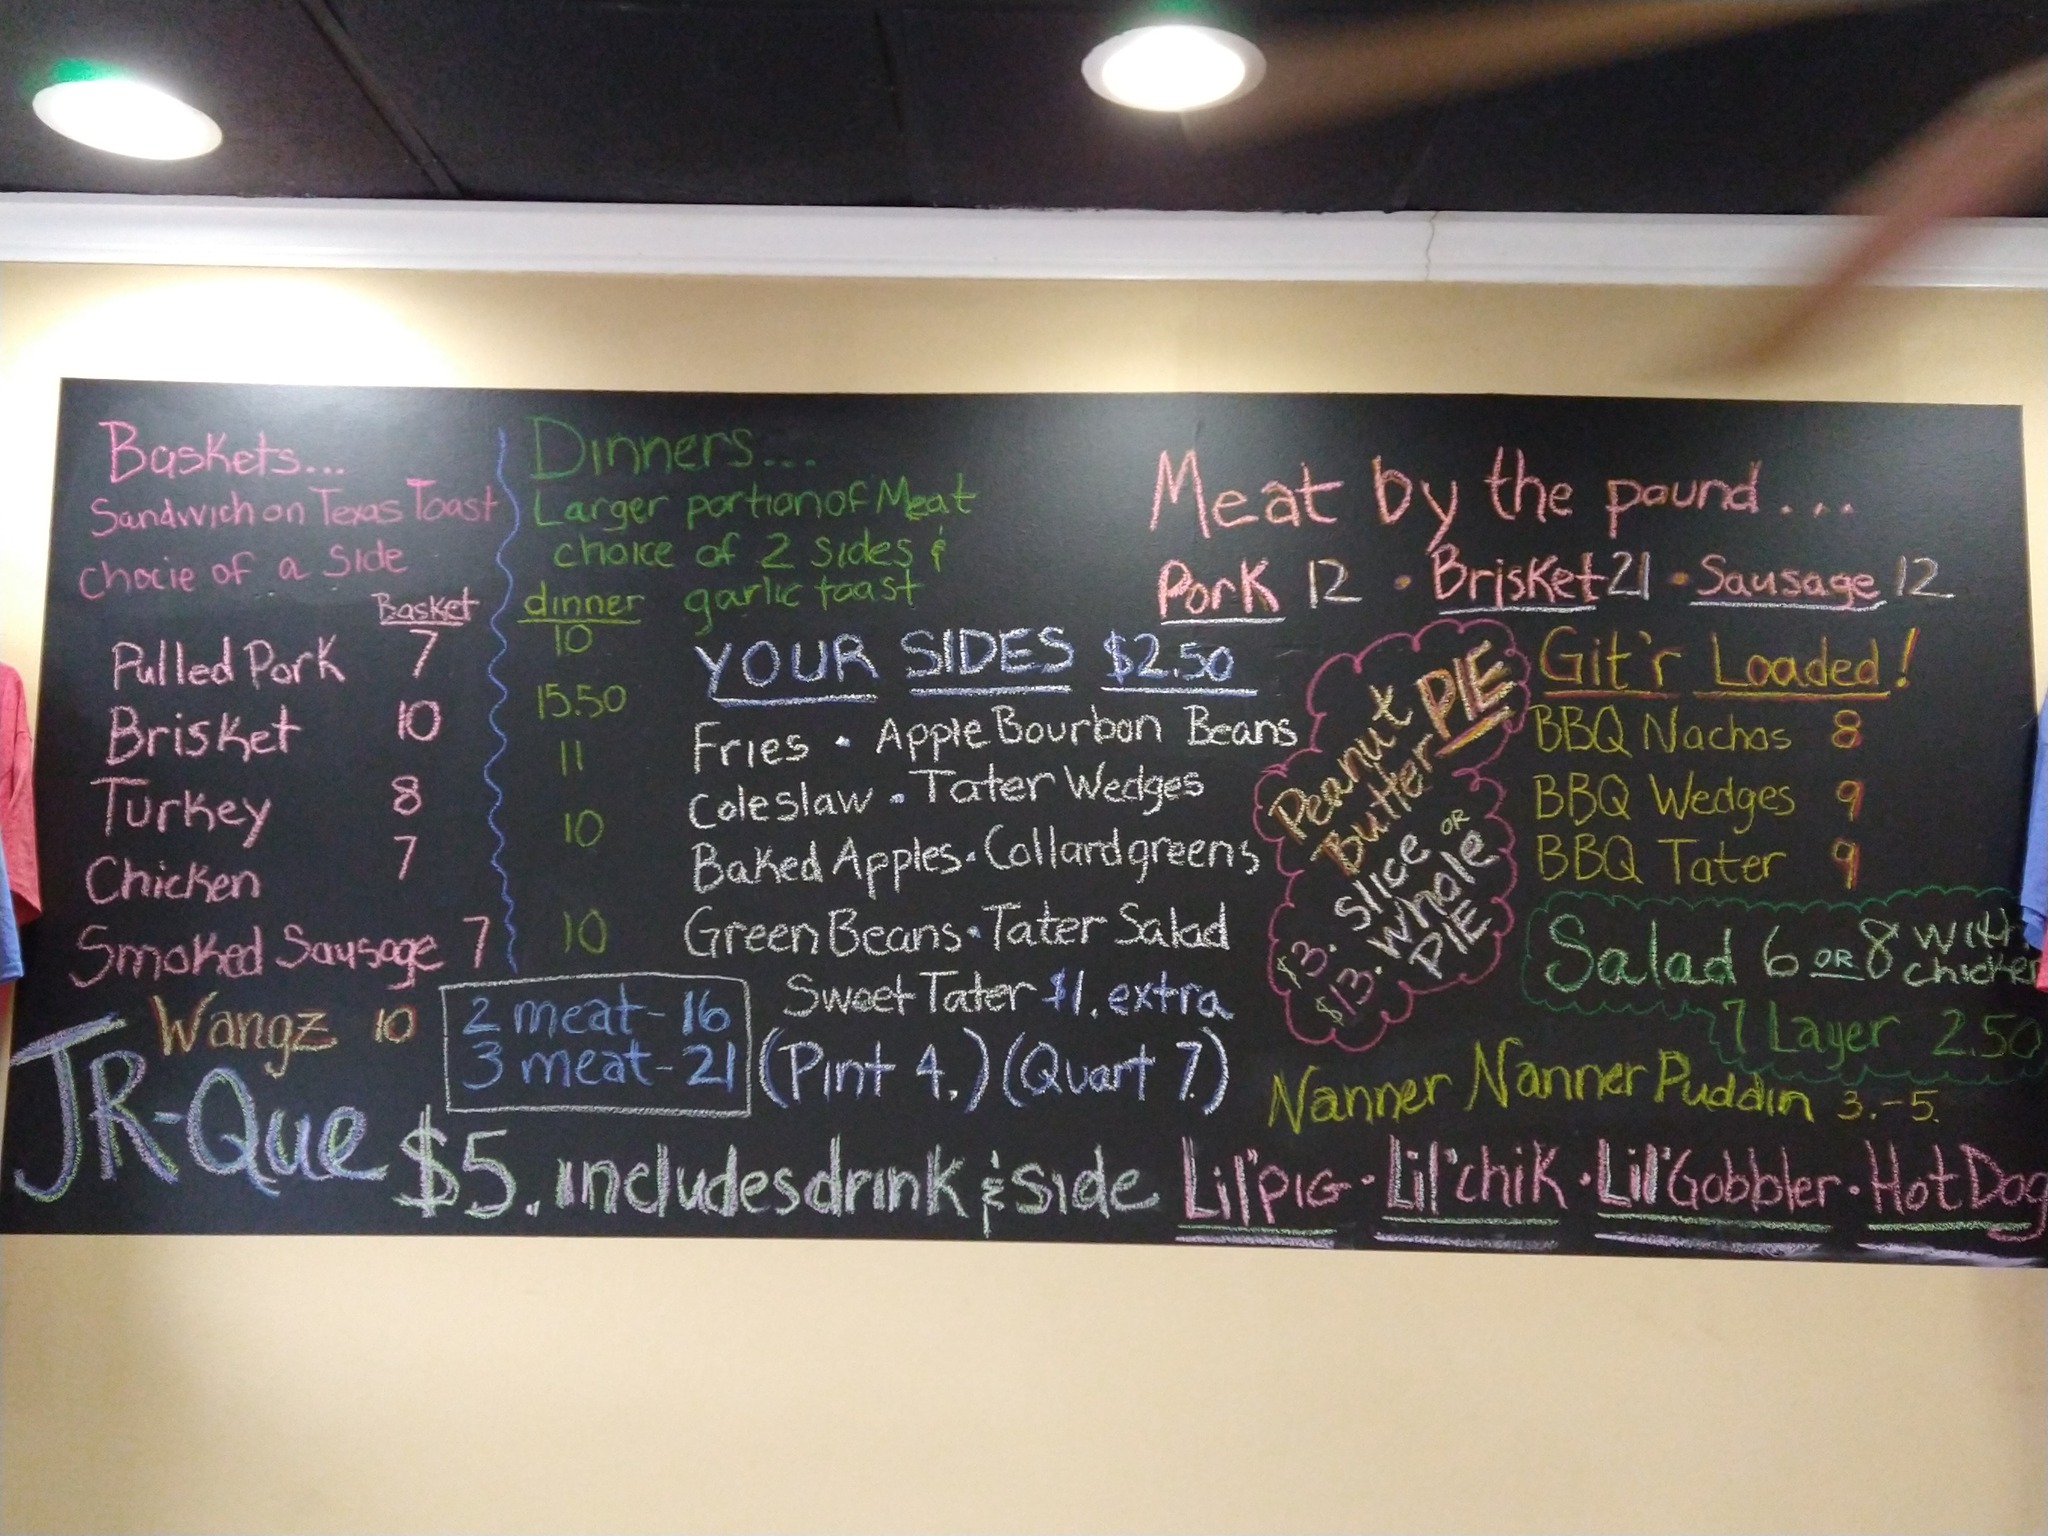 Baskets...
Sandwich on Texas Toast
chocie of a side
Basket
Pulled Pork 7
Brisket 10
Turkey 8
Chicken 7
Smoked Sausage 7
Wangz 10
Dinners...
Larger portion of Meat
choice of 2 sides &
garlic toast
dinner
10
15.50
11
10
10
2 meat-16
3 meat-21
YOUR SIDES $2.50
Fries · Apple Bourbon Beans
Coleslaw · Tater Wedges
Baked Apples · Collard greens
Green Beans · Tater Salad
Sweet Tater $1. extra
(Pint 4.) (Quart 7.)
Meat by the pound....
Pork 12 · Brisket 21 · Sausage 12
Peanut
Butter PIE
$3. slice OR
$13. whole
PIE
Git'r Loaded!
BBQ Nachos 8
BBQ Wedges 9
BBQ Tater 9
Salad 6 OR 8 with
chicken
7 Layer 2.50
Nanner Nanner Puddin 3.-5.
JR-Que
$5. includes drink & side
Lil'PIG · Lil'chik · Lil'Gobbler · Hot Dog